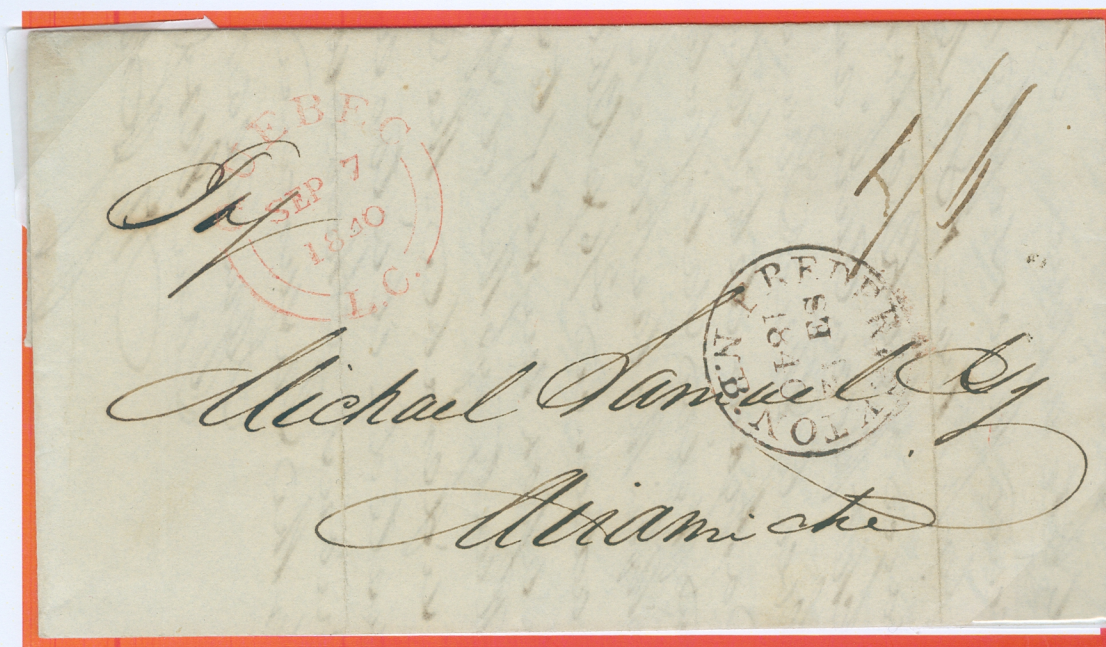 QUEBEC
SEP 7
1840
L.C.
1/1
FREDERICTON N.B.
SE
1840
Michael Samuel Esq
Miramichi